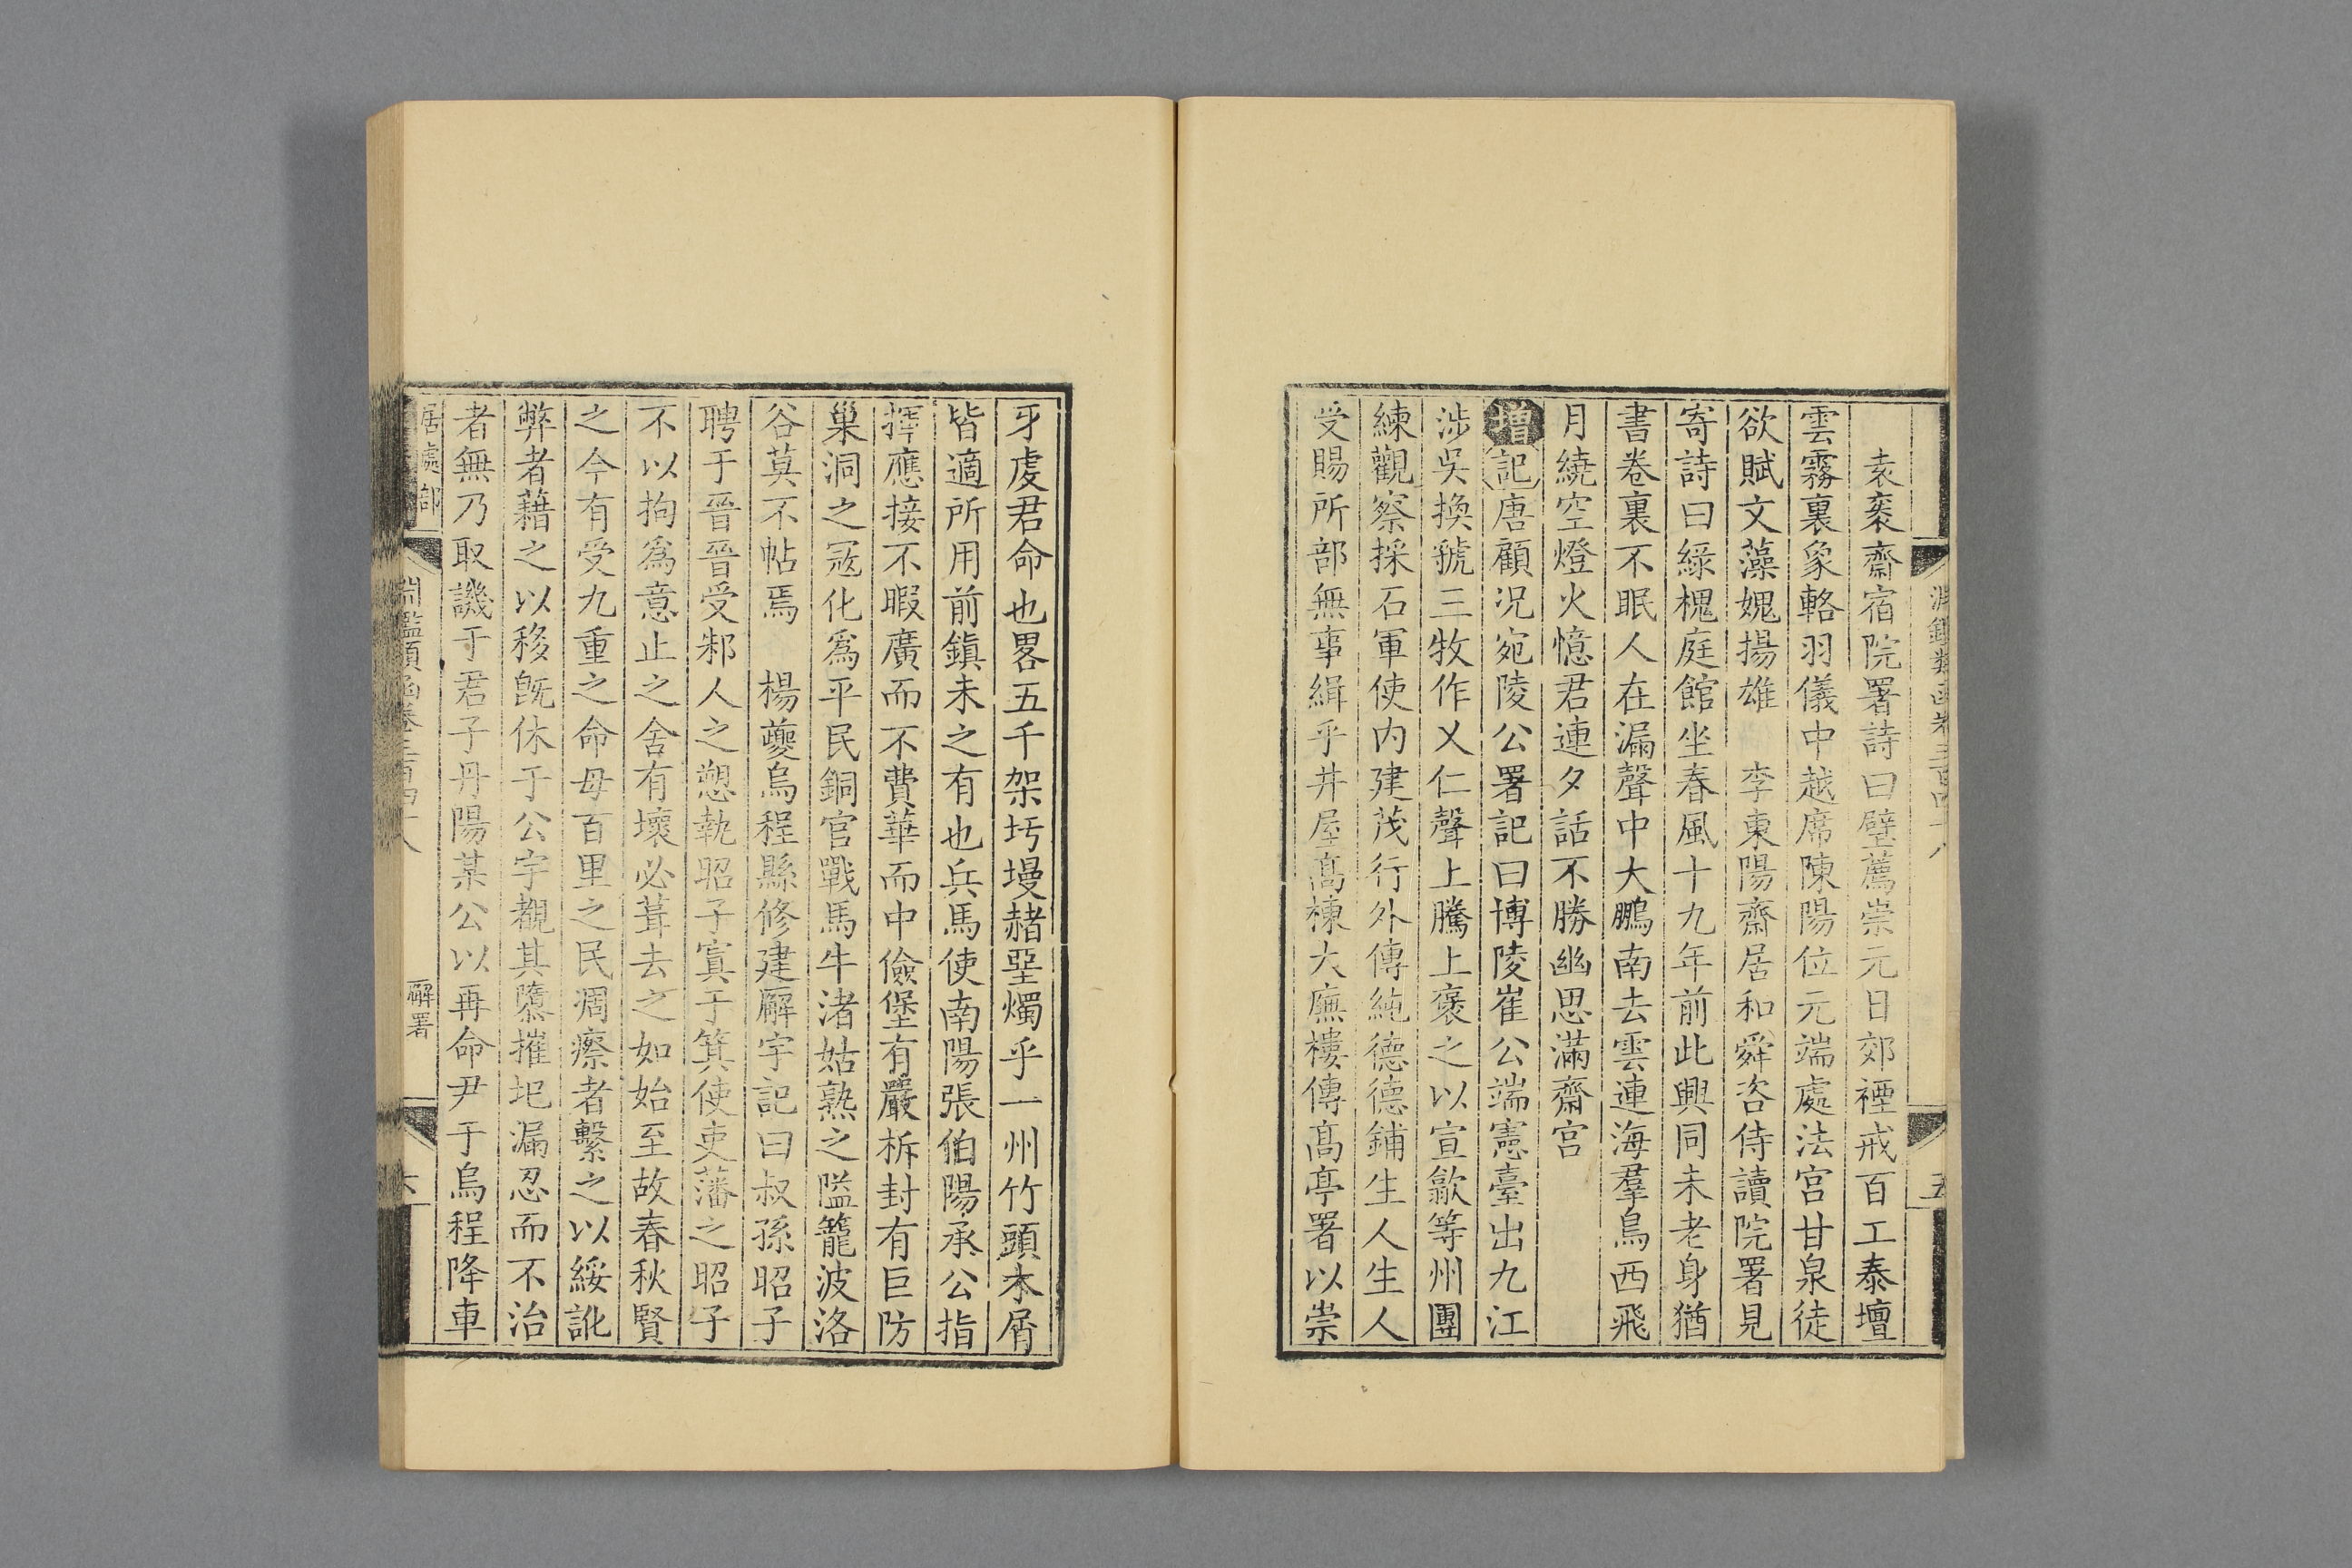 淵鑑類函卷三百四十八
五
袁袠齋宿院署詩曰璧薦崇元日郊禋戒百工泰壇
雲霧裏象輅羽儀中越席陳陽位元端處法宮甘泉徒
欲賦文藻媿揚雄 李東陽齋居和舜咨侍讀院署見
寄詩曰綠槐庭館坐春風十九年前此興同未老身猶
書卷裏不眠人在漏聲中大鵬南去雲連海羣鳥西飛
月繞空燈火憶君連夕話不勝幽思滿齋宮
增記唐顧況宛陵公署記曰博陵崔公端憲臺出九江
涉吳換虢三牧作乂仁聲上騰上褒之以宣歙等州團
練觀察採石軍使内建茂行外傳純德德鋪生人生人
受賜所部無事緝乎井屋髙棟大廡樓傳髙亭署以崇
牙虔君命也畧五千架圬墁赭堊燭乎一州竹頭木屑
皆適所用前鎮未之有也兵馬使南陽張伯陽承公指
揮應接不暇廣而不費華而中儉堡有嚴柝封有巨防
巢洞之寇化爲平民銅官戰馬牛渚姑熟之隘籠波洛
谷莫不帖焉 楊夔烏程縣修建廨宇記曰叔孫昭子
聘于晉晉受邾人之愬執昭子寘于箕使吏藩之昭子
不以拘爲意止之舍有壞必葺去之如始至故春秋賢
之今有受九重之命母百里之民凋瘵者繫之以綏訛
弊者藉之以移旣休于公宇覩其隳摧圯漏忍而不治
者無乃取譏于君子丹陽某公以再命尹于烏程降車
居處部 淵鑑類函卷三百四十八 廨署 六